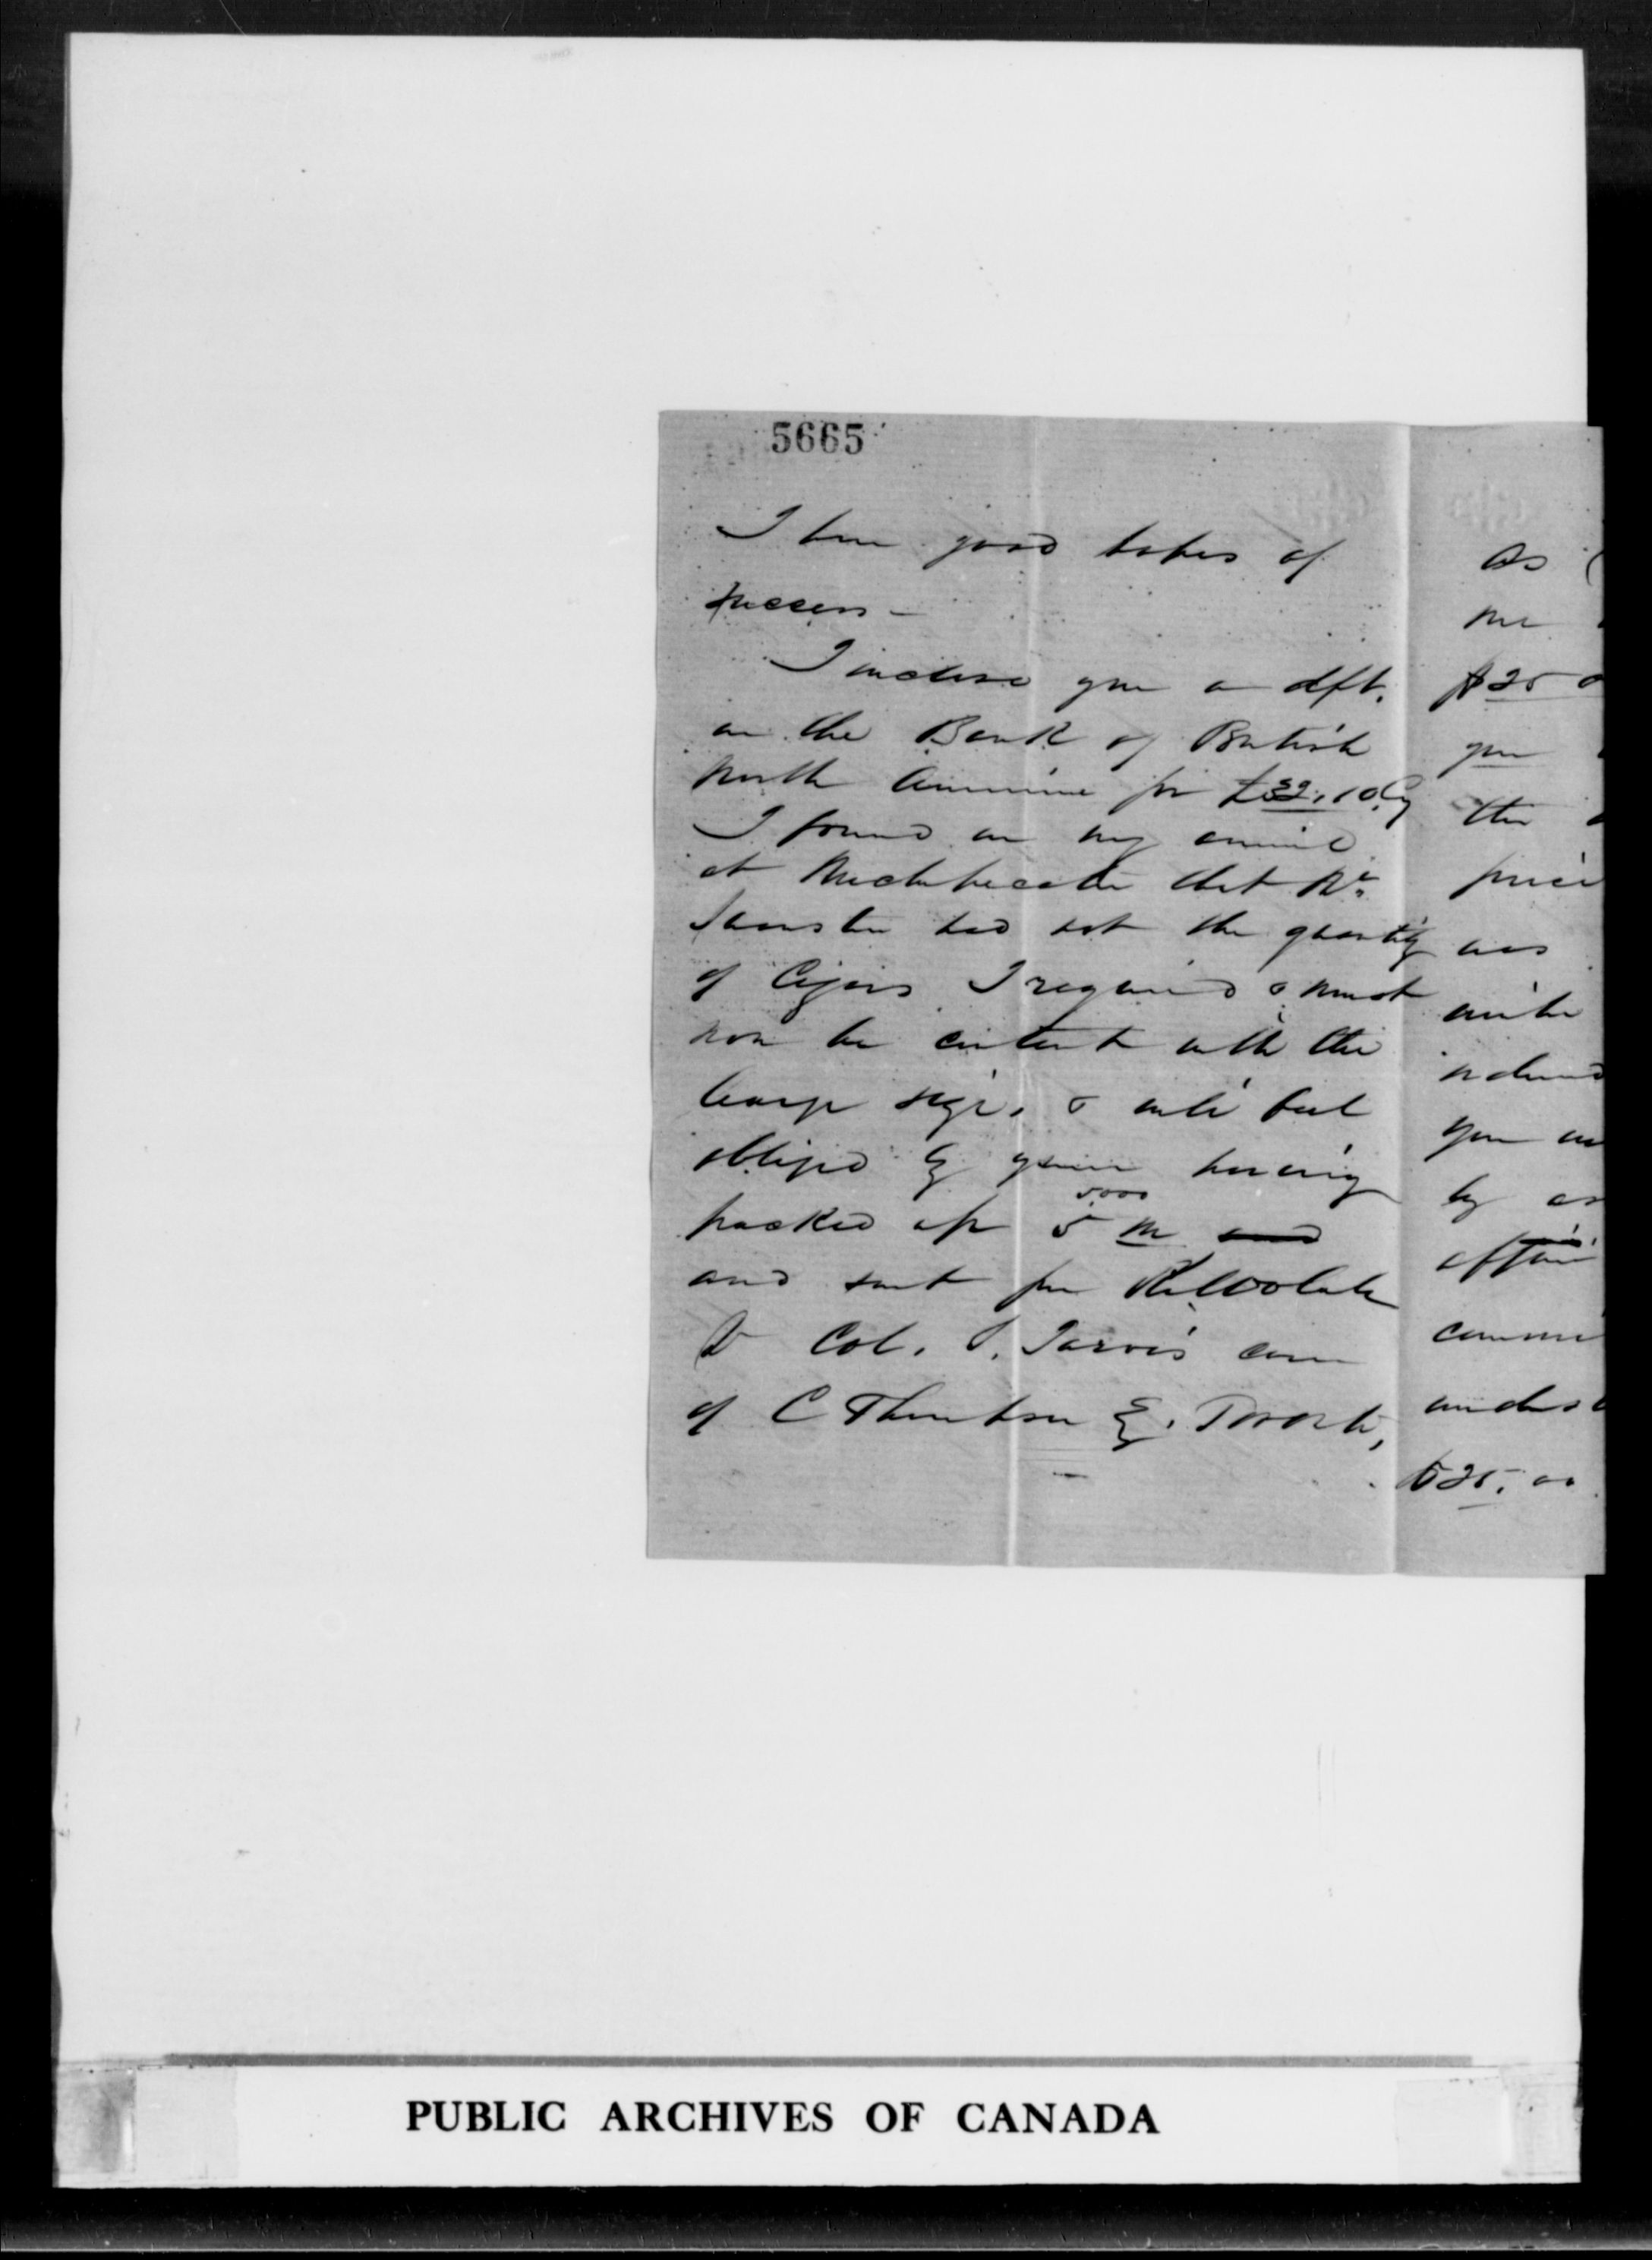 5665
I have good hopes of
success -
I inclose you a dft.
on the Bank of British
North America for £32.10 Cy
I found on my arrival
at that Mr.
had not the quantity
of Cigars I required & must
now be content with the
large size, & will feel
obliged by your having
packed up 5 M and
5000
and sent per
to Col. S. Jarvis care
of C Thompson Esq. Toronto,
as
me
$25 0
you
the
price
was
with
you
by as
affair
$25.00
PUBLIC ARCHIVES OF CANADA